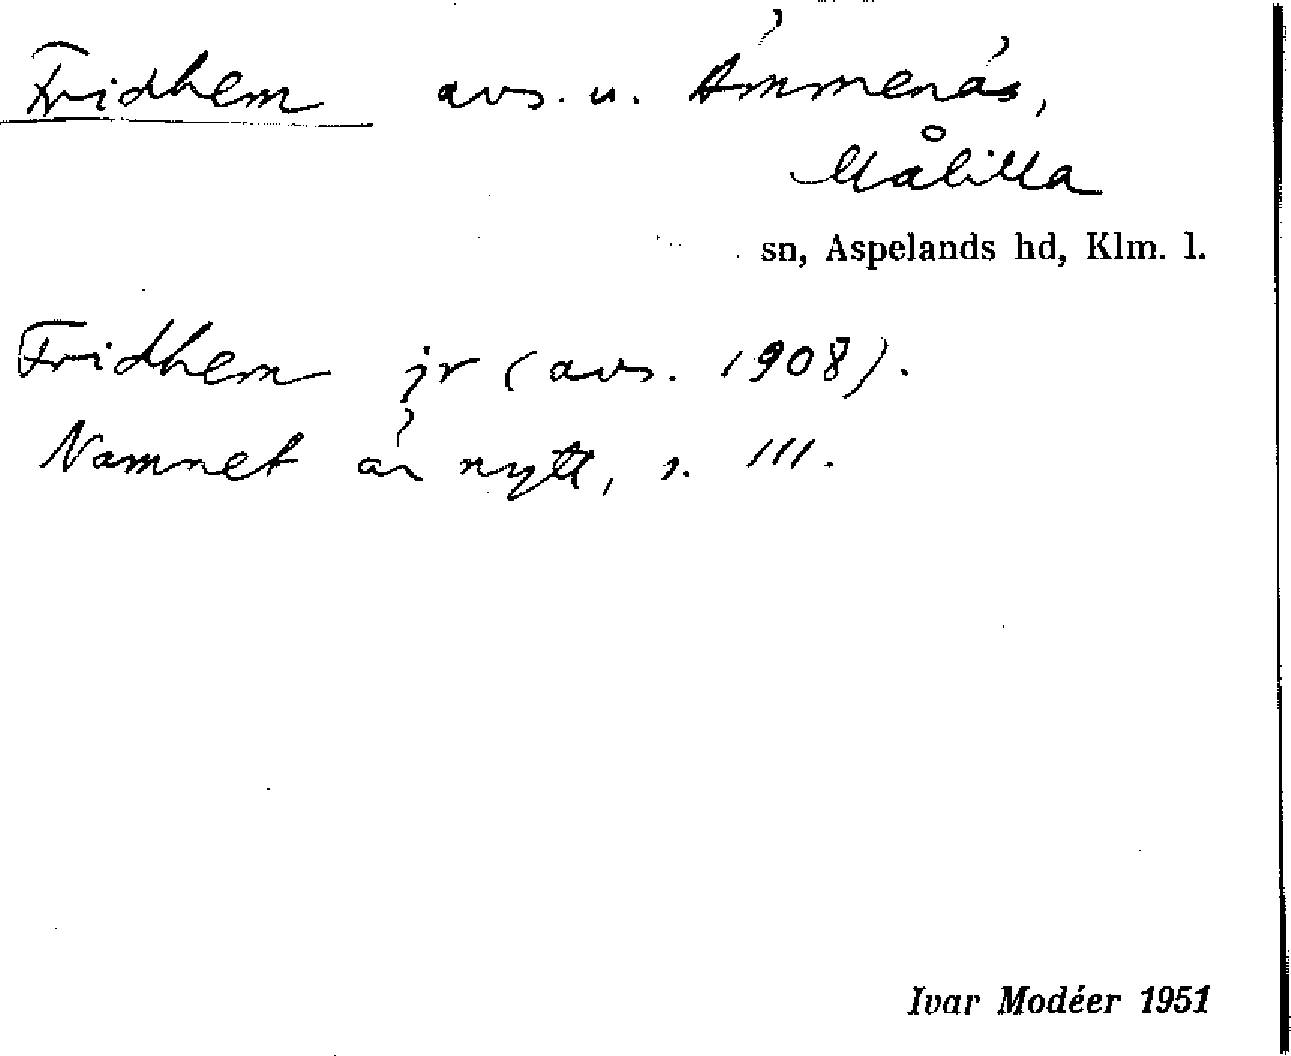 Fridhem avs. u. Ämmenäs,
Målilla
sn, Aspelands hd, Klm. l.
Fridhem jr (avs. 1908).
Namnet är nytt, s. 111.
Ivar Modéer 1951